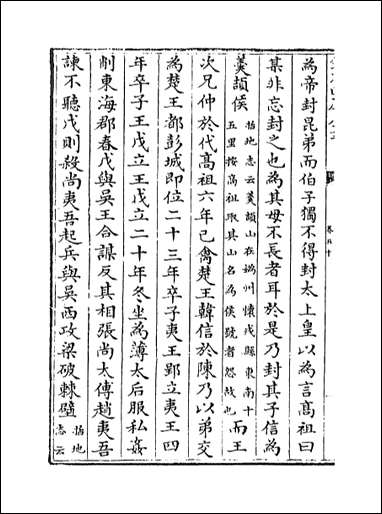 卷五十
為帝封昆弟而伯子獨不得封太上皇以為言髙祖曰
某非忘封之也為其母不長者耳於是乃封其子信為
羮頡侯
括地志云羮頡山在媯州懷戎縣東南十
五里按髙祖取其山名為侯號者怨故也
而王
次兄仲於代髙祖六年已禽楚王韓信於陳乃以弟交
為楚王都彭城即位二十三年卒子夷王郢立夷王四
年卒子王戊立王戊立二十年冬坐為薄太后服私姦
削東海郡春戊與吳王合謀反其相張尚太傅趙夷吾
諫不聽戊則殺尚夷吾起兵與吳西攻梁破棘壁
括地
志云